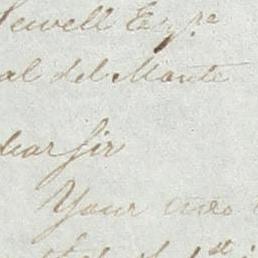 Sewell Esqre
al del Monte
Dear Sir
Your two
1st